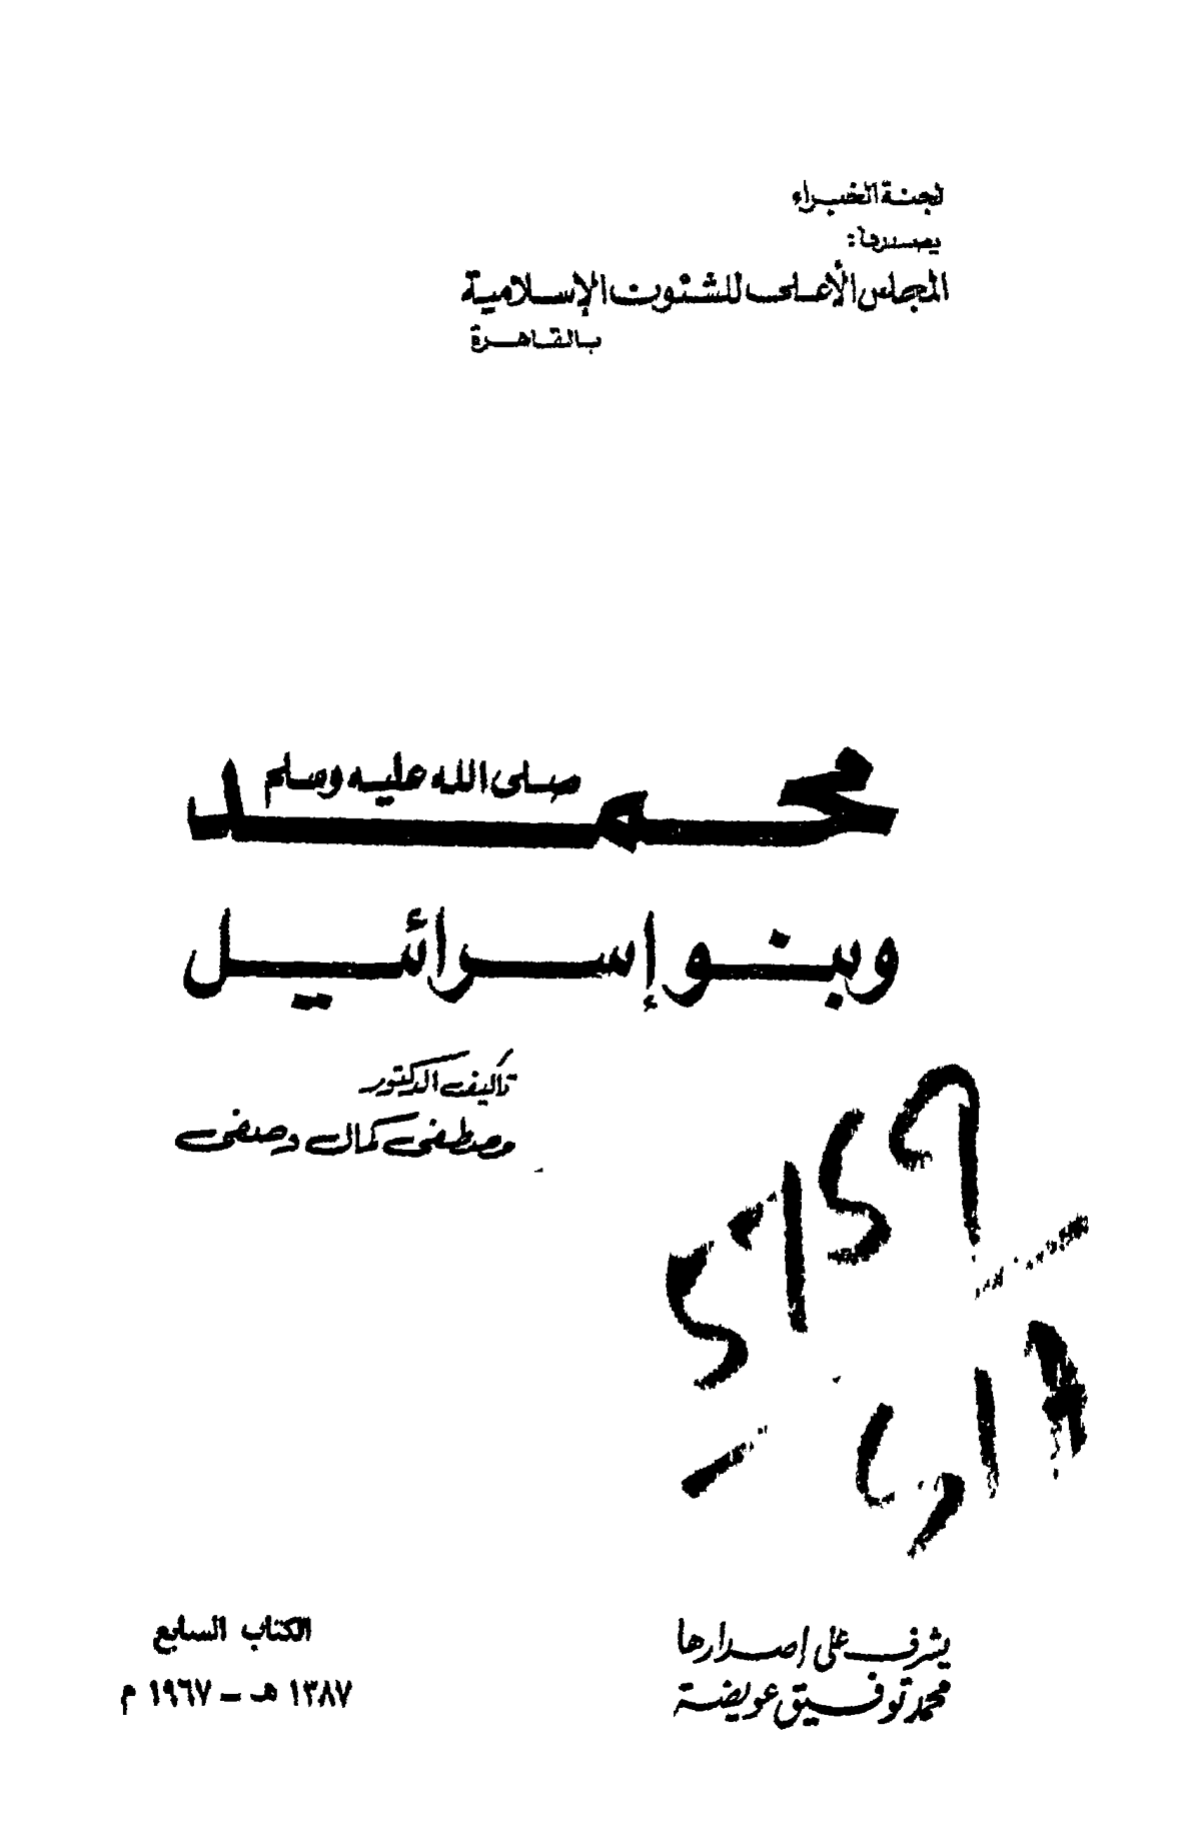 لجنة الخبراء
يصدرها:
المجلس الأعلى للشئون الإسلامية
بالقاهرة
محمد صلى الله عليه وسلم
وبنو إسرائيل
تأليف الدكتور
مصطفى كمال وصفى
يشرف على إصدارها
محمد توفيق عويضة
الكتاب السابع
١٣٨٧ هـ - ١٩٦٧ م